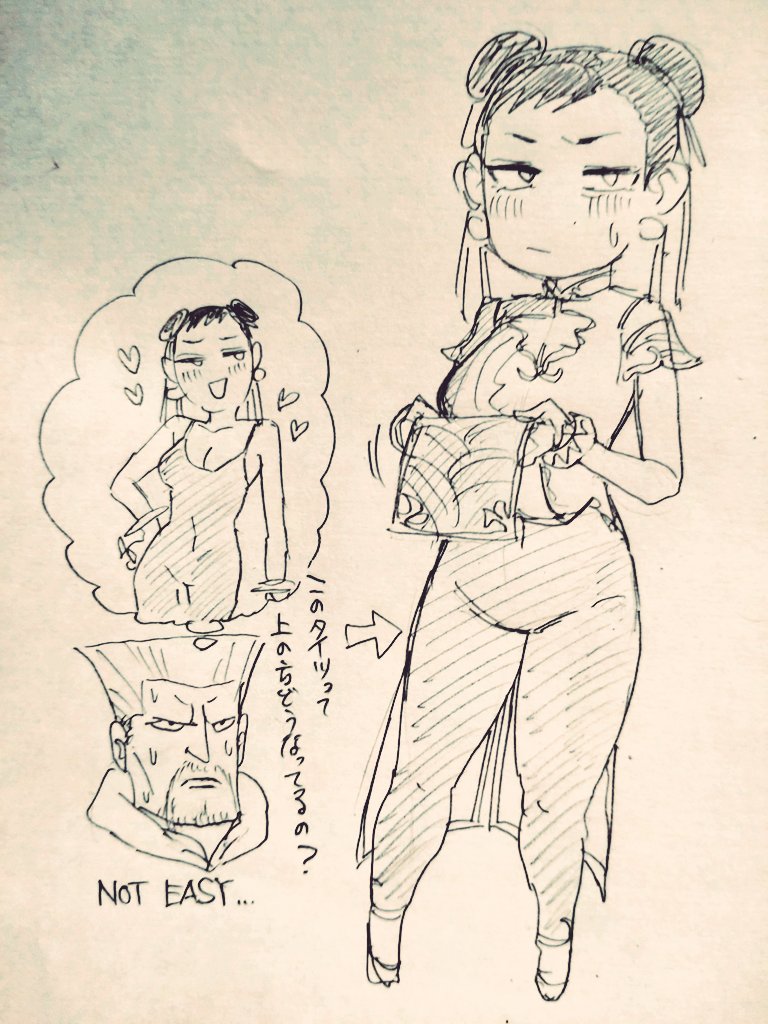 このタイツって
上の方どうなってるの?
NOT EASY...